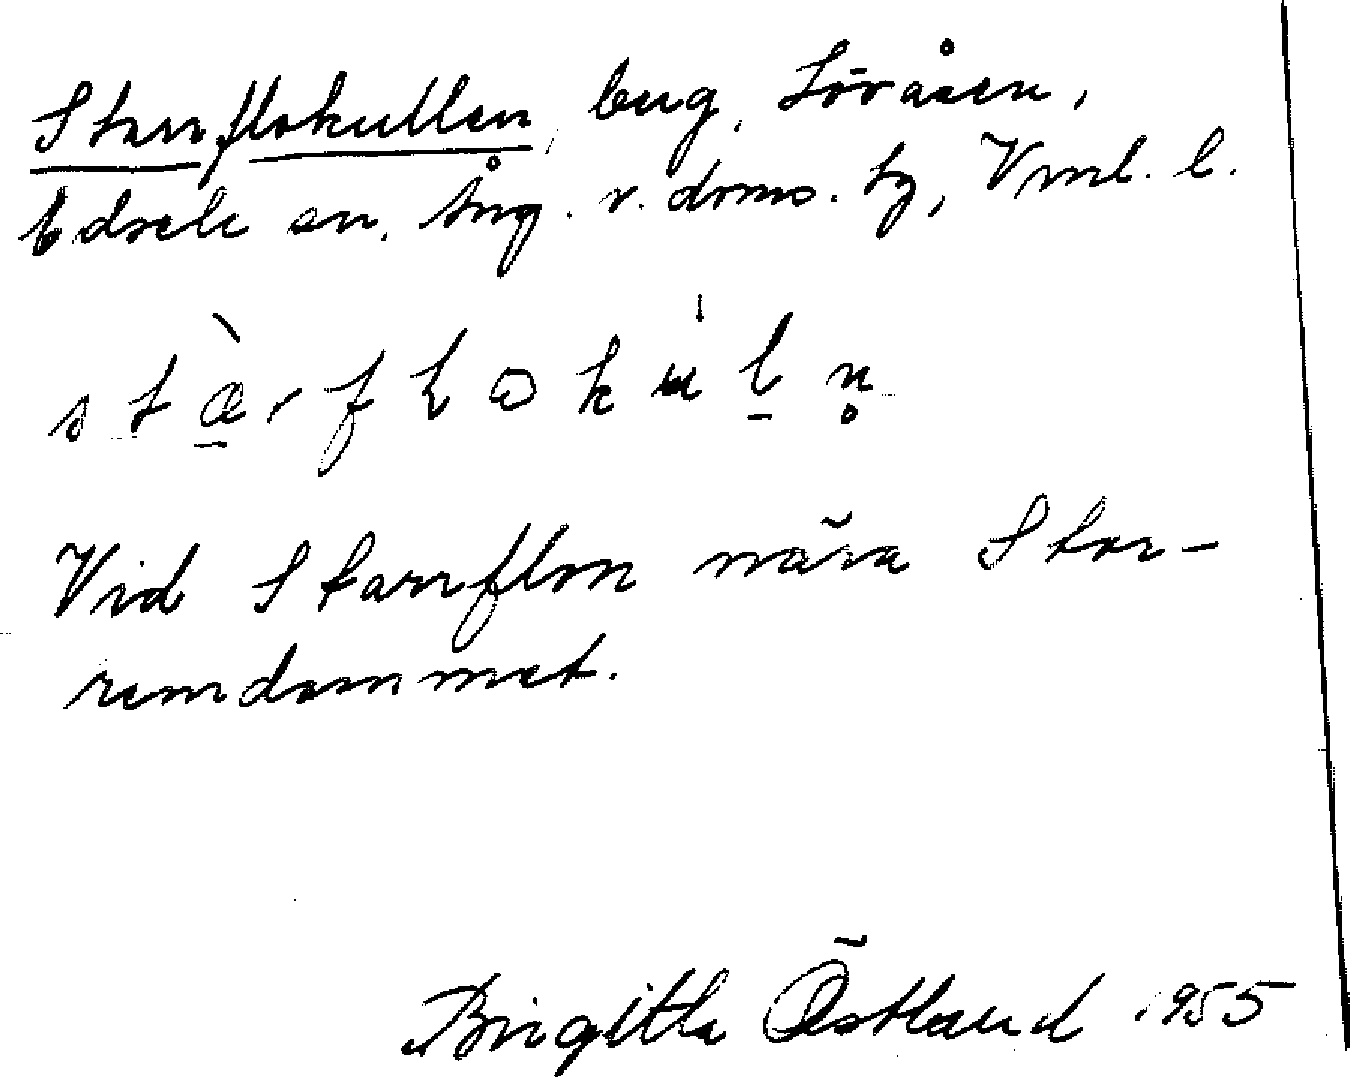 Starrflokullen, berg, Lövåsen,
Edsele sn. Ång. v. doms. tg, Vml. l.
stàrfLokúln̥
Vid Starrflon nära Stor-
remdammet.
Birgitta Östlund 1955